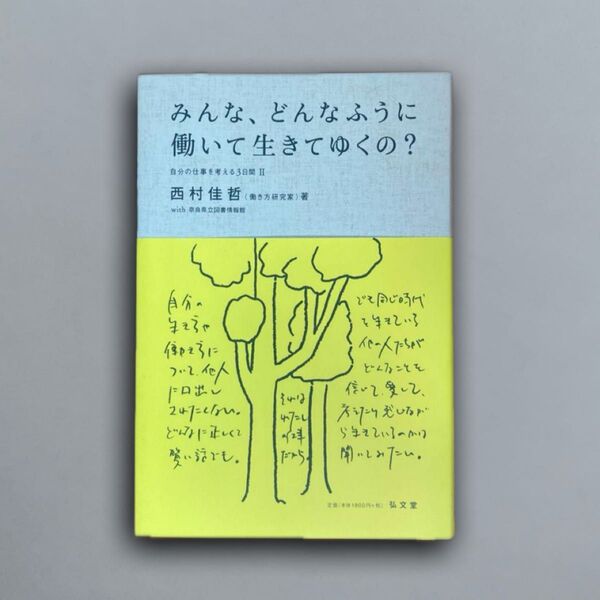 みんな、どんなふうに
働いて生きてゆくの？
自分の仕事を考える3日間 II
西村佳哲（働き方研究家）著
with 奈良県立図書情報館
自分の
生き方や
働き方に
ついて、他人
に口出し
されたくない。
どんなに正しくて
賢い話でも。
それは
わたし
の仕事
だから。
でも同じ時代
を生きている
他の人たちが
どんなことを
信じて、愛して、
考えたり感じなが
ら生きているのかは
聞いてみたい。
定価（本体1800円+税）
弘文堂